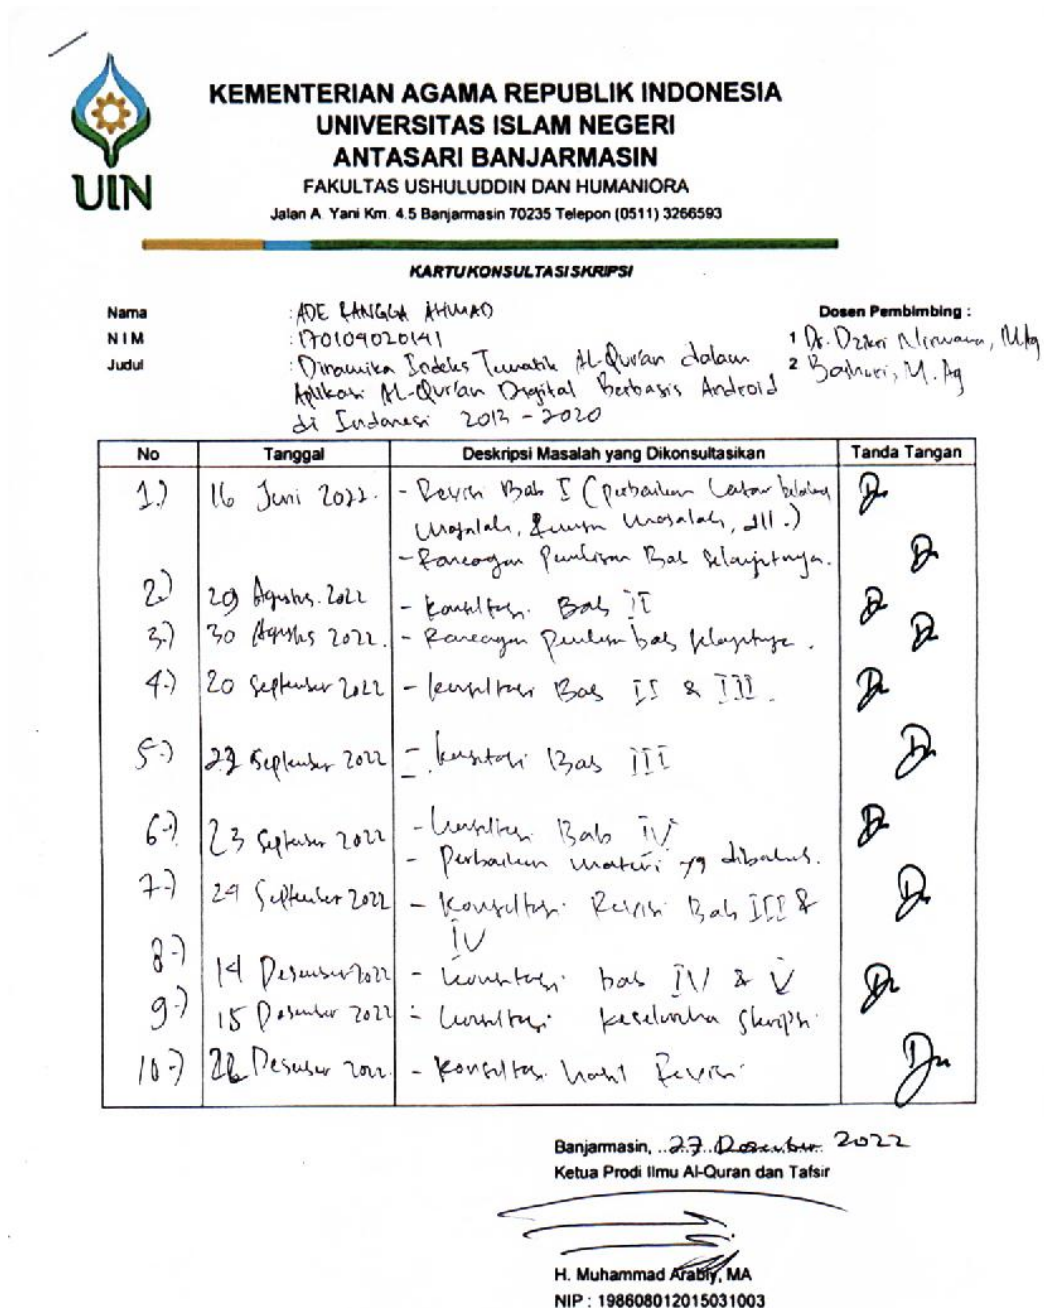 UIN
KEMENTERIAN AGAMA REPUBLIK INDONESIA
UNIVERSITAS ISLAM NEGERI
ANTASARI BANJARMASIN
FAKULTAS USHULUDDIN DAN HUMANIORA
Jalan A. Yani Km. 4.5 Banjarmasin 70235 Telepon (0511) 3266593
KARTU KONSULTASI SKRIPSI
Nama : ADE RANGGA AHMAD
NIM : 170104020141
Judul : Dinamika Indeks Tematik Al-Qur'an dalam
Aplikasi Al-Qur'an Digital Berbasis Android
di Indonesi 2013 - 2020
Dosen Pembimbing :
1 Dr. Dzikri Nirwana, M.Ag
2 Bashori, M.Ag
No Tanggal Deskripsi Masalah yang Dikonsultasikan Tanda Tangan
1.) 16 Juni 2022. - Revisi Bab I (perbaikan latar belakang
masalah, rumusan masalah, dll.)
- Rancangan Penulisan Bab selanjutnya.
2.) 29 Agustus 2022 - Konsultasi Bab II
3.) 30 Agustus 2022. - Rancangan penulisan bab selanjutnya.
4.) 20 September 2022 - konsultasi Bab II & III
5.) 22 September 2022 - konsultasi Bab III
6.) 23 September 2022 - konsultasi Bab IV
- Perbaikan materi yg dibahas.
7.) 29 September 2022 - Konsultasi Revisi Bab III &
IV
8.) 14 Desember 2022 - konsultasi bab IV & V
9.) 15 Desember 2022 - konsultasi keseluruhan Skripsi
10.) Desember 2022. - konsultasi hasil Revisi
Banjarmasin, 27 Desember 2022
Ketua Prodi Ilmu Al-Quran dan Tafsir
H. Muhammad Arabiy, MA
NIP : 198608012015031003